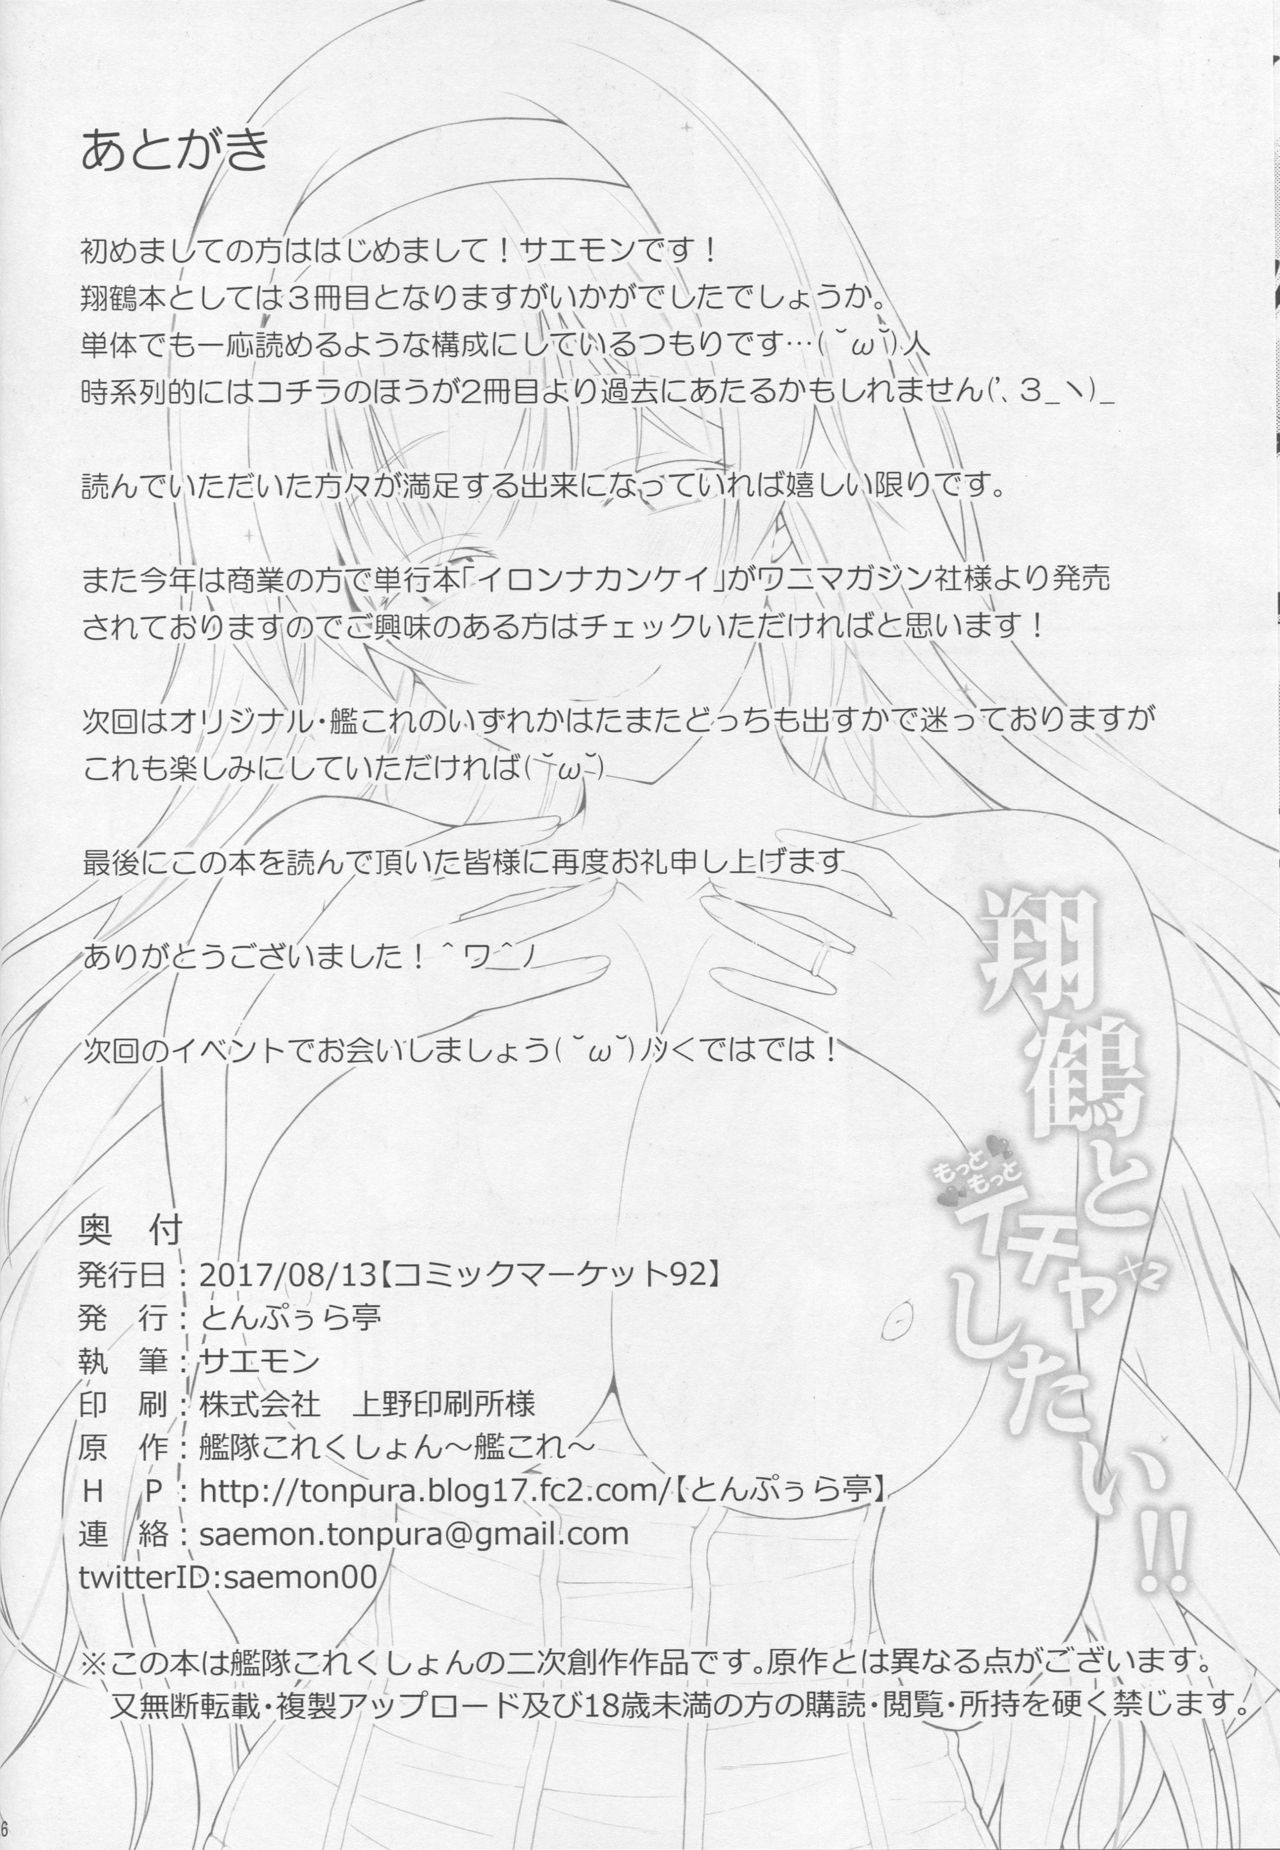 あとがき
初めましての方ははじめまして！サエモンです！
翔鶴本としては３冊目となりますがいかがでしたでしょうか。
単体でも一応読めるような構成にしているつもりです…( ˘ω˘)人
時系列的にはコチラのほうが2冊目より過去にあたるかもしれません('、３_ヽ)_
読んでいただいた方々が満足する出来になっていれば嬉しい限りです。
また今年は商業の方で単行本「イロンナカンケイ」がワニマガジン社様より発売
されておりますのでご興味のある方はチェックいただければと思います！
次回はオリジナル・艦これのいずれかはたまたどっちも出すかで迷っておりますが
これも楽しみにしていただければ( ˘ω˘)
最後にこの本を読んで頂いた皆様に再度お礼申し上げます
ありがとうございました！＾ワ＾ノ
次回のイベントでお会いしましょう( ˘ω˘)ﾉｼくではでは！
翔鶴と
もっと
もっと
イチャ×2
したい!!
奥　付
発行日：2017/08/13【コミックマーケット92】
発　行：とんぷぅら亭
執　筆：サエモン
印　刷：株式会社　上野印刷所様
原　作：艦隊これくしょん～艦これ～
Ｈ　Ｐ：http://tonpura.blog17.fc2.com/【とんぷぅら亭】
連　絡：saemon.tonpura@gmail.com
twitterID:saemon00
※この本は艦隊これくしょんの二次創作作品です。原作とは異なる点がございます。
又無断転載・複製アップロード及び18歳未満の方の購読・閲覧・所持を硬く禁じます。
6